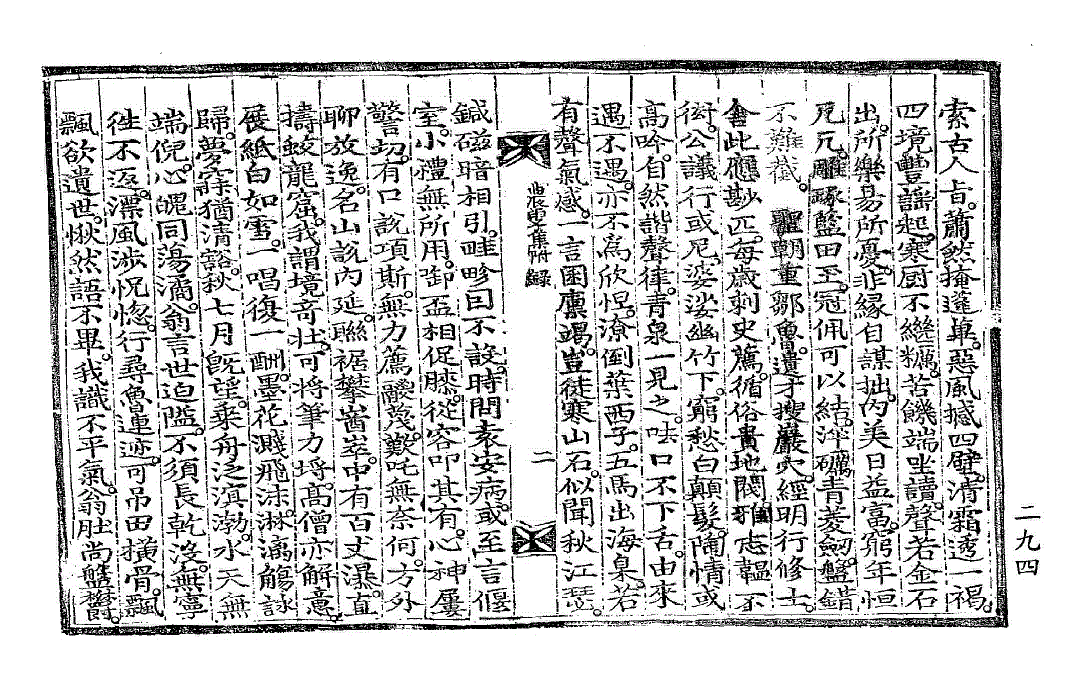 索古人旨。蕭然掩蓬蓽。惡風撼四壁。清霜透一褐。
四境豐謠起。寒厨不繼糲。苦饑端坐讀。聲若金石
出。所樂易所憂。非緣自謀拙。內美日益富。窮年恒
兀兀。雕琢藍田玉。冠佩可以結。淬礪靑菱劒。盤錯
不難截。 朝重鄒魯。遺才搜巖穴。經明行修士。
會此應尠匹。每歲刺史薦。循俗貴地閥。雅志韞不
衒。公議行或尼。婆娑幽竹下。窮愁白顚髮。陶情或
高吟。自然諧聲律。靑泉一見之。呿口不下舌。由來
遇不遇。亦不爲欣怛。潦倒葉西子。五馬出海臬。若
有聲氣感。一言囷廩竭。豈徒寒山石。似聞秋江瑟。
集附錄
二
鍼磁暗相引。畦畛曰不設。時問袁安病。或至言偃
室。小禮無所用。卸盃相促膝。從容叩其有。心神屢
警切。有口說項斯。無力薦鬷蔑。歎吒無奈何。方外
聊放逸。名山說內延。聯裾攀崷崒。中有百丈瀑。直
擣蛟龍窟。我謂境奇壯。可將筆力埒。高僧亦解意。
展紙白如雪。一唱復一酬。墨花濺飛沫。淋漓觴詠
歸。夢寐猶淸豁。秋七月旣望。乘舟泛溟渤。水天無
端倪。心魄同蕩潏。翁言世迫隘。不須長乾沒。無寧
徃不返。漂風涉怳惚。行尋魯連迹。可吊田橫骨。飄
飄欲遺世。愀然語不畢。我識不平氣。翁肚尚盤欝。
二九四